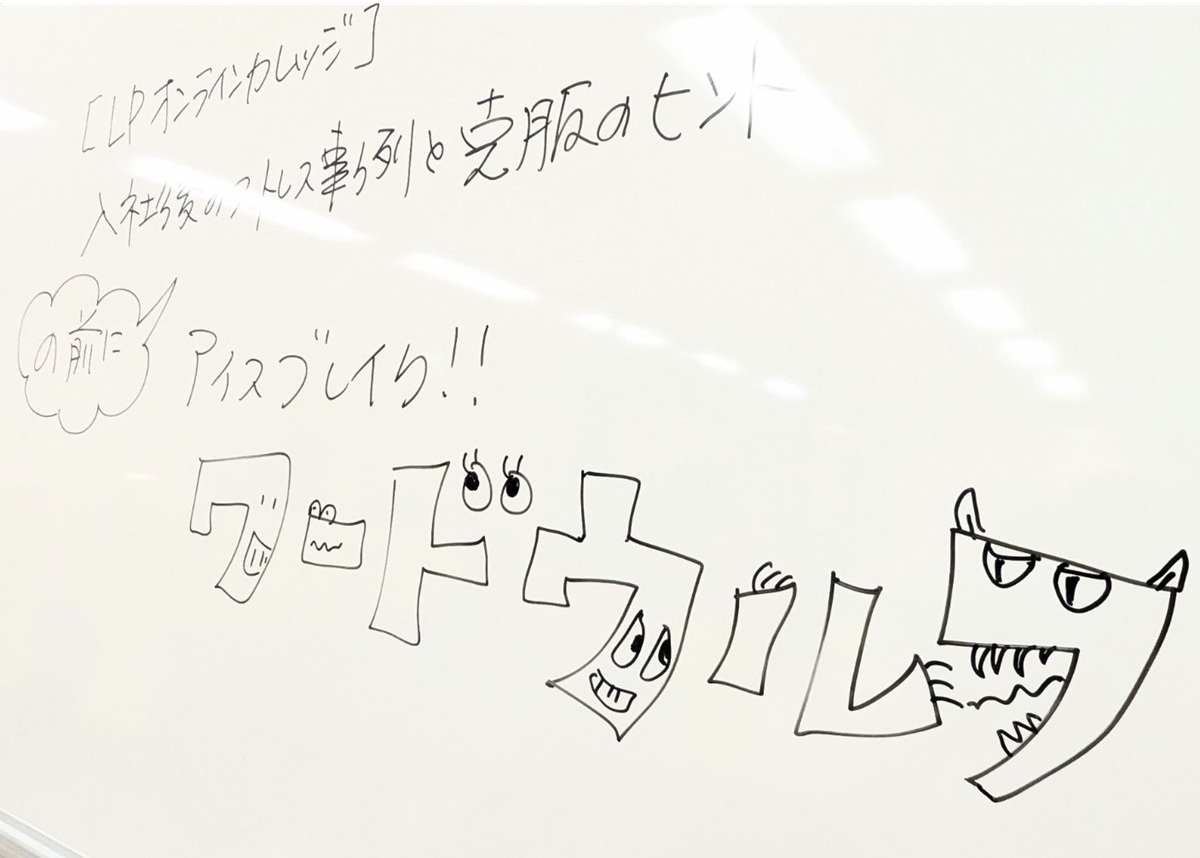 [LPオンラインカレッジ]
入社後のストレス事例と克服のヒント
の前に
アイスブレイク!!
ワードウルフ